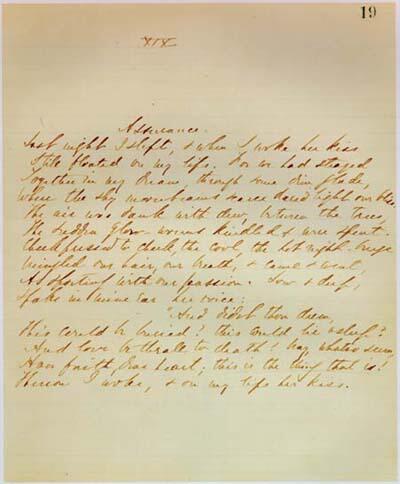 19
XIX
Assurance.
Last night I slept, & when I woke her kiss
Still floated on my lips. For we had strayed
Together in my Dream, through some dim glade,
Where the shy moonbeams scarce dared light our bliss.
The air was dank with dew, between the trees,
The hidden glow-worms kindled & were spent.
Cheek pressed to cheek, the cool, the hot night-breeze
Mingled our hair, our breath, & came & went,
As sporting with our passion. Low & deep,
Spake in mine ear her voice:
"And didst thou dream,
This could be buried? this could be asleep?
And love be thrall to death? Nay whatso seem,
Have faith, dear heart; this is the thing that is!
Thereon I woke, & on my lips her kiss.